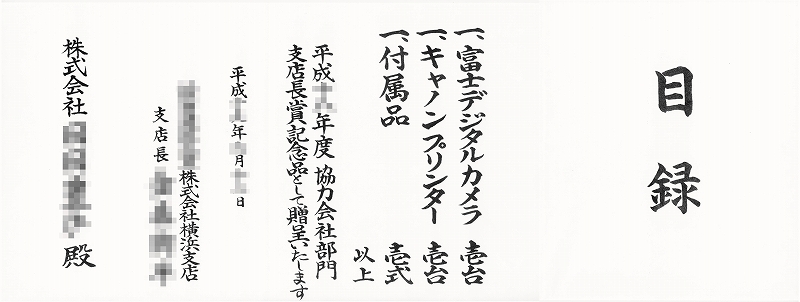 目録
一、富士デジタルカメラ 壱台
一、キャノンプリンター 壱台
一、付属品 壱式
以上
平成 年度 協力会社部門
支店長賞記念品として贈呈いたします
平成 年 月 日
株式会社横浜支店
支店長
株式会社 殿